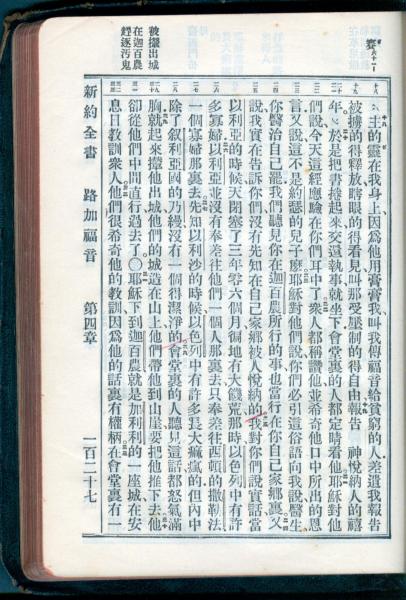 賽六十一1
被攆出城
在迦百農
趕逐污鬼
主的靈在我身上因爲他用膏膏我叫我傳福音給貧窮的人差遣我報告
被擄的得釋放瞎眼的得看見叫那受壓制的得自由報告 神悅納人的禧
年於是把書捲起來交還執事就坐下會堂裏的人都定睛看他耶穌對他
們說今天這經應驗在你們耳中了衆人都稱讚他並希奇他口中所出的恩
言又說這不是約瑟的兒子麼耶穌對他們說你們必引這俗語向我說醫生
你醫治自己罷我們聽見你在迦百農所行的事也當行在你自己家鄉裏又
說我實在告訴你們沒有先知在自己家鄉被人悅納的我對你們說實話當
以利亞的時候天閉塞了三年零六個月徧地有大饑荒那時以色列中有許
多寡婦以利亞並沒有奉差往他們一個人那裏去只奉差往西頓的撒勒法
一個寡婦那裏去先知以利沙的時候以色列中有許多長大痲瘋的但內中
除了叙利亞國的乃縵沒有一個得潔淨的會堂裏的人聽見這話都怒氣滿
胸就起來攆他出城他們的城造在山上他們帶他到山崖要把他推下去他
卻從他們中間直行過去了○耶穌下到迦百農就是加利利的一座城在安
息日敎訓衆人他們很希奇他的敎訓因爲他的話裏有權柄在會堂裏有一
新約全書 路加福音 第四章 一百二十七